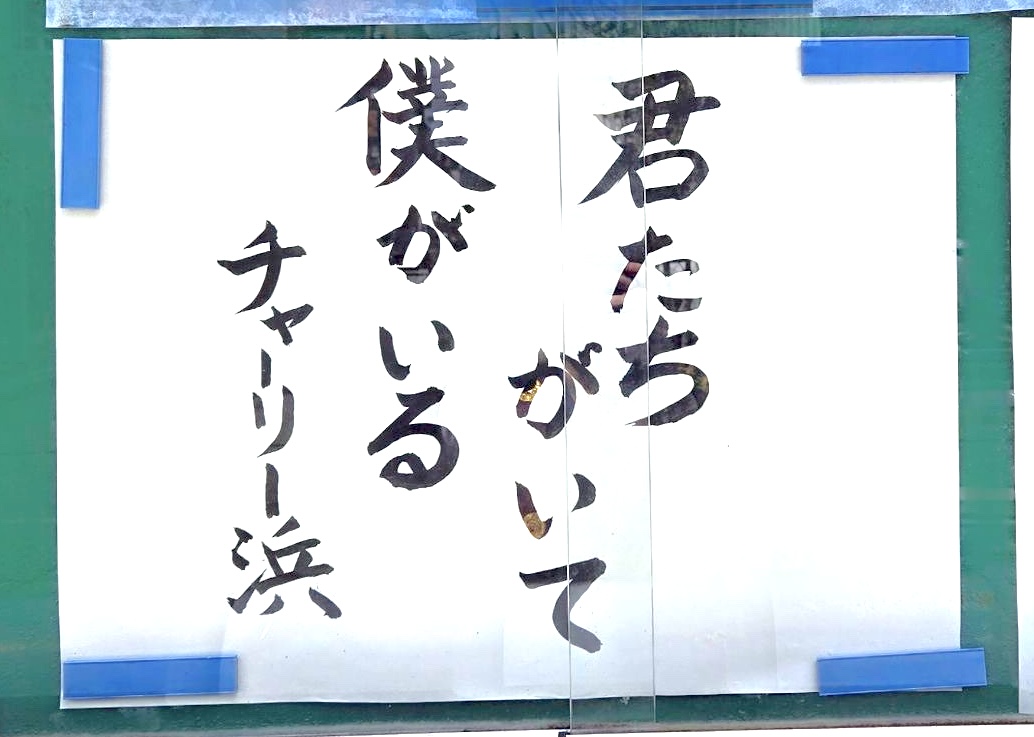 君たち
がいて
僕がいる
チャーリー浜